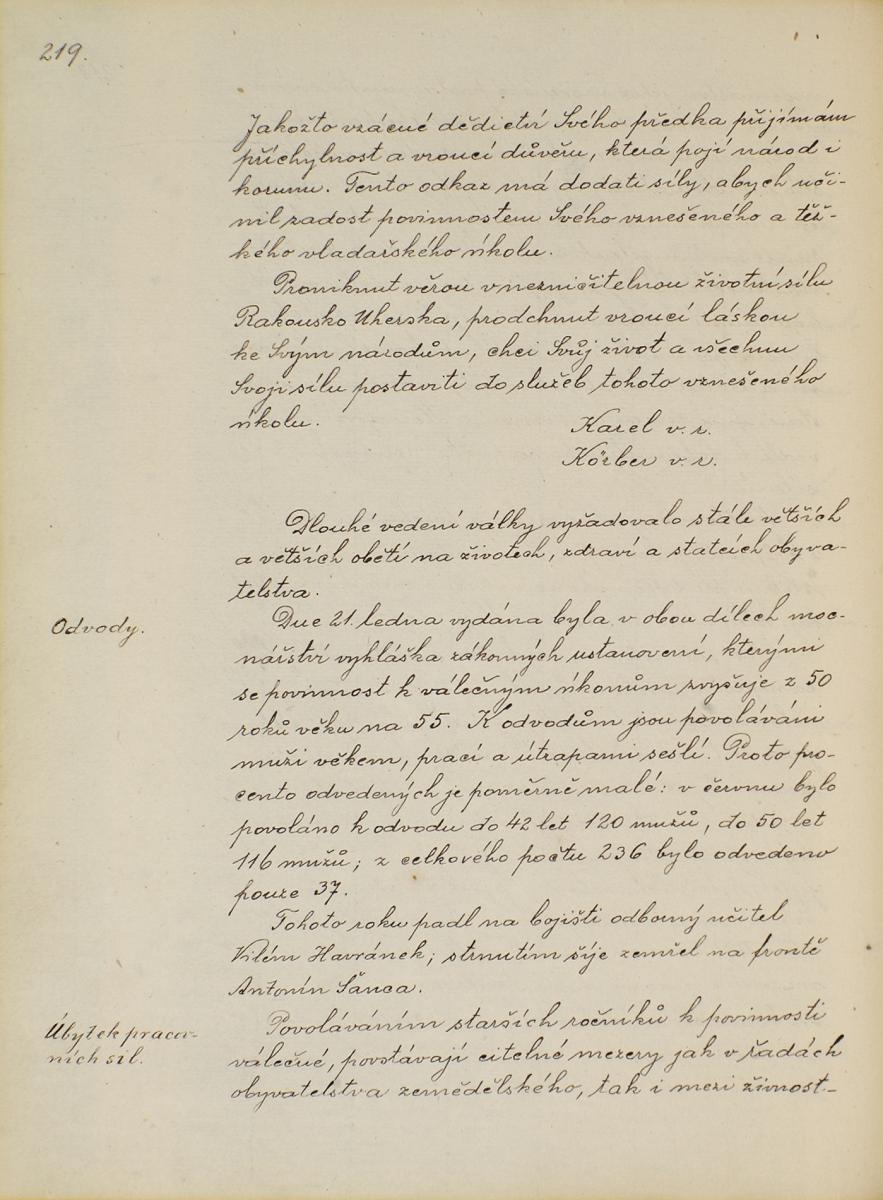 219.
Jakožto vzácné dědictví Svého předka přijímám
příchylnost a vroucí důvěru, která pojí národ i
korunu. Tento odkaz má dodati síly, abych uči-
nil zadost povinnostem Svého vznešeného a těž-
kého vladařského úkolu.
Proniknut věrou v nezničitelnou životní sílu
Rakousko Uherska, prodchnut vroucí láskou
ke Svým národům, chci Svůj život a všechnu
Svoji sílu postaviti do služeb tohoto vznešeného
úkolu.
Karel v. r.
Körber v. r.
Dlouhé vedení války vyžadovalo stále větších
a větších obětí na životech, zdraví a statcích obyva-
telstva.
Odvody.
Dne 21. ledna vydána byla v obou dílech moc-
nářství vyhláška zákonných ustanovení, kterými
se povinnost k válečným úkonům zvyšuje z 50
roků věku na 55. K odvodům jsou povoláváni
muži věkem, prací a útrapami sešlí. Proto pro-
cento odvedených je poměrně malé: v červnu bylo
povoláno k odvodu do 42 let 120 mužů, do 50 let
116 mužů; z celkového počtu 236 bylo odvedeno
pouze 37.
Tohoto roku padl na bojišti odborný učitel
Vilém Havránek; strnutím šíje zemřel na frontě
Antonín Šanca.
Úbytek pracov-
ních sil.
Povoláváním starších ročníků k povinnosti
válečné, povstávají citelné mezery jak v řadách
obyvatelstva zemědělského, tak i mezi živnost-